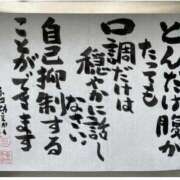 どんだけ腹が
たっても
口調だけは
穏やかに話し
なさい
自己抑制する
ことができます